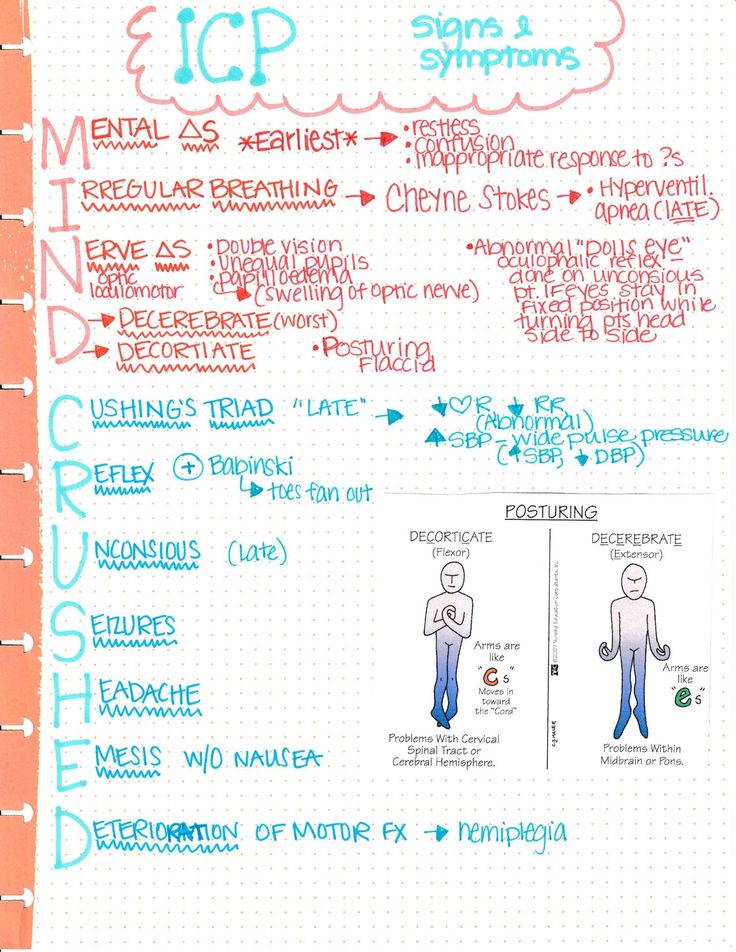 ICP signs &
symptoms
MENTAL ΔS *Earliest* → • restless
• confusion
• inappropriate response to ?s
IRREGULAR BREATHING → Cheyne Stokes → • Hyperventil.
apnea (LATE)
NERVE ΔS
optic
/oculomotor
• Double vision
• Unequal pupils
• papilloedema
↳ (swelling of optic nerve)
• Abnormal "Dolls eye"
oculophalic reflex –
done on unconsious
pt. if eyes stay in
fixed position while
turning pts head
side to side
D → DECEREBRATE (worst)
→ DECORTIATE • Posturing
Flaccid
CUSHING'S TRIAD "LATE" → ↓♡R ↓ RR
(Abnormal)
↑ SBP – wide pulse pressure
(↑SBP, ↓DBP)
REFLEX (+) Babinski
↳ toes fan out
UNCONSIOUS (Late)
SEIZURES
HEADACHE
EMESIS W/O NAUSEA
DETERIORATION OF MOTOR FX → hemiplegia
POSTURING
DECORTICATE
(Flexor)
Arms are
like
"C s
Moves in
toward
the "Cord"
Problems With Cervical
Spinal Tract or
Cerebral Hemisphere.
©2007 Nursing Education Consultants, Inc.
DECEREBRATE
(Extensor)
Arms are
like
"e"s
Problems Within
Midbrain or Pons.